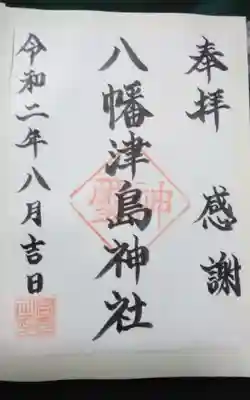 奉拝 感謝
八幡津島神社
令和二年八月吉日